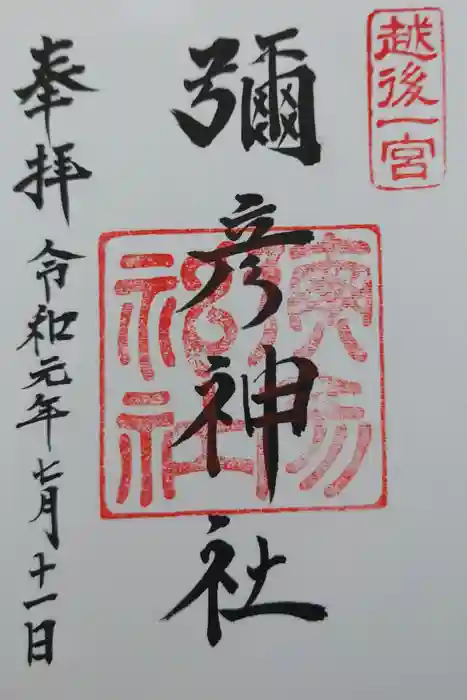 越後一宮
彌彦神社
奉拝
令和元年七月十一日